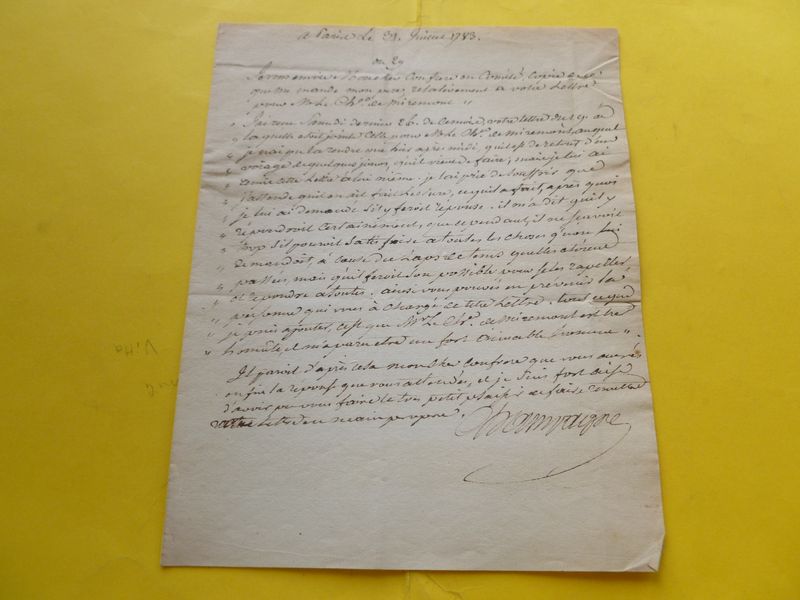 a Paris Le 31 1783.
ou 29
Je vous envoie Confrere au Comité, copie de ce
que me mande mon pere, relativement a votre Lettre
pour Mr Le Chr. de Miremont "
" J'ai reçu Samedi dernier 26. de ce mois, votre lettre du 19. à
" laquelle etoit jointe Celle pour Mr Le Chr. de Miremont, auquel
" je n'ai pu la rendre que hier après midi, qu'il est de retour d'un
" voiage de quelques jours, qu'il vient de faire; mais je lui ai
" cette Lettre a lui même. je l'ai prié de Souffrir que
" j'attende qu'il en ait fait Lecture, ce qu'il a fait, après quoi
" je lui ai demandé s'il y feroit reponse. il m'a dit qu'il y
" répondroit Certainement, que cependant, il ne Scavoit
" trop s'il pourroit Satisfaire a toutes les choses qu'on lui
" demandoit, à cause du Laps de tems qu'elles etoient
" passées, mais qu'il feroit Son possible pour Se les rapeller,
" et repondre a toutes. ainsi vous pouvés en prévenir la
" personne qui vous à chargé de cette Lettre. tout ce que
" je puis ajouter, c'est que Mr Le Chr. de Miremont est très
" honnête, et m'a paru être un fort aimable homme ".
Il paroit d'après cela mon cher Confrere que vous aurés
enfin la reponse que vous attendés, et je Suis fort aise
d'avoir pu vous faire le très petit plaisir de faire remettre
votre Lettre en main propre.